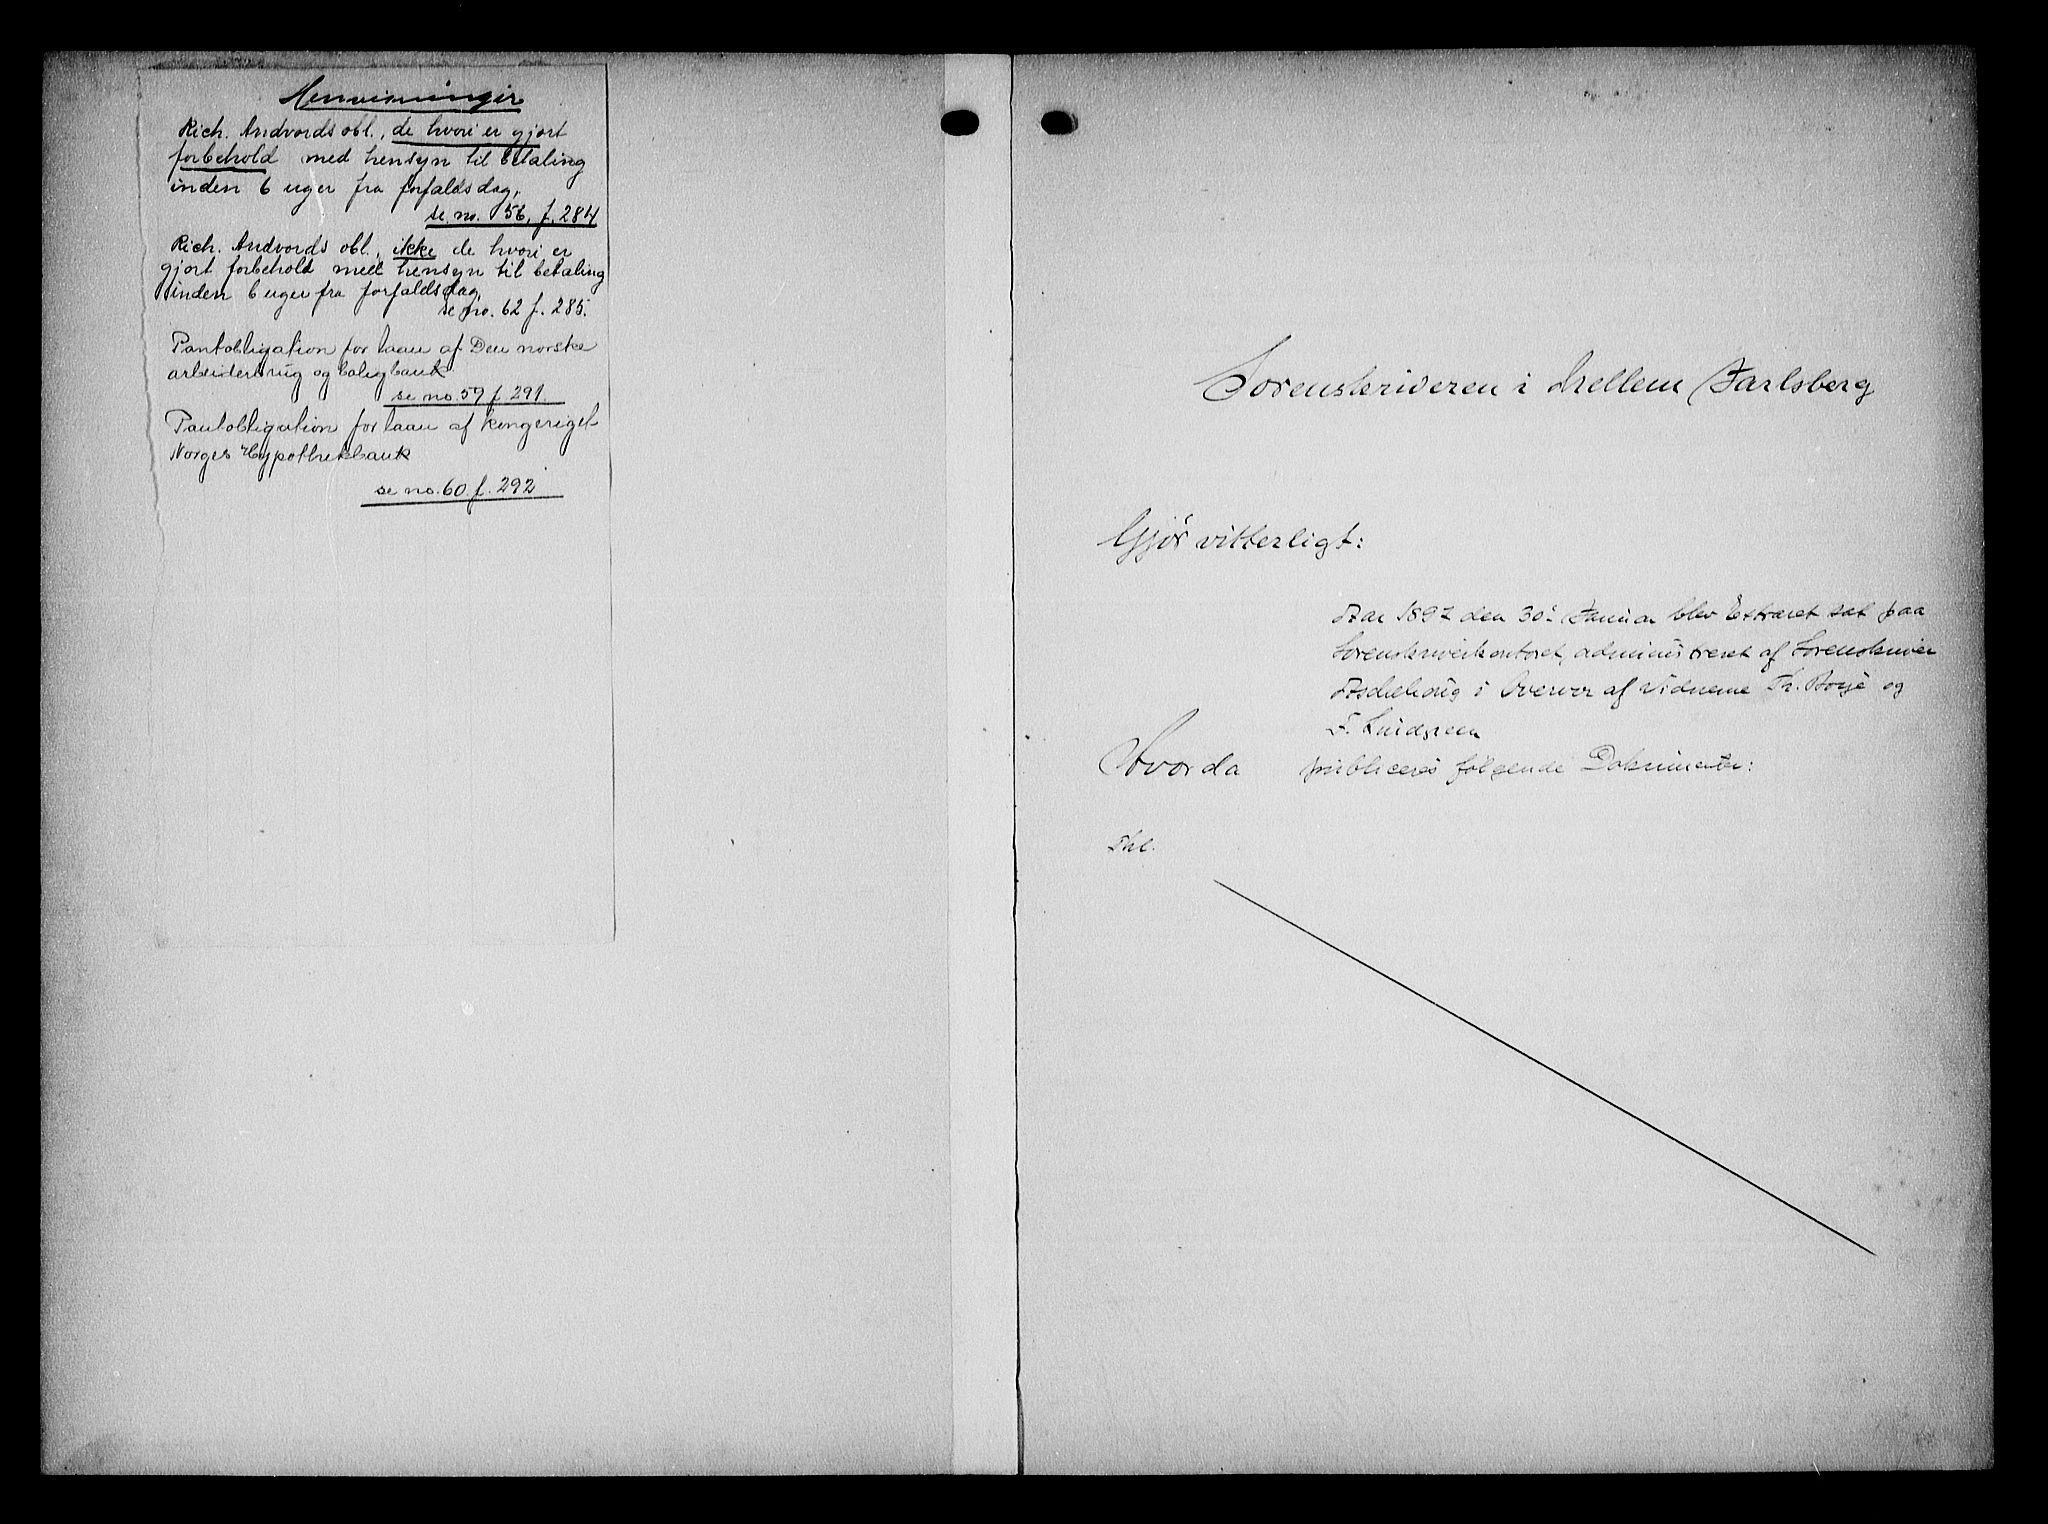 Henvisninger
Rich. Andvords obl., de hvori er gjort
forbehold med hensyn til betaling
inden 6 uger fra forfaldsdag,
se no. 56, f. 284
Rich. Andvords obl., ikke de hvori er
gjort forbehold med hensyn til betaling
inden 6 uger fra forfaldsdag,
se no. 62 f. 285.
Pantobligation for laan af Den norske
arbeiderbrug og boligbank
se no. 59 f. 291
Pantobligation for laan af kongeriget
Norges Hypothekbank
se no. 60 f. 292
Sorenskriveren i Mellem Jarlsberg
Gjør vitterligt:
Aar 1897 den 30: Januar blev Extraret sat paa
Sorenskriverkontoret, administreret af Sorenskriver
Aschehoug i Overvær af Vidnerne Th. Borge og
F. Lindgreen
Hvorda publiceres følgende Dokumenter: